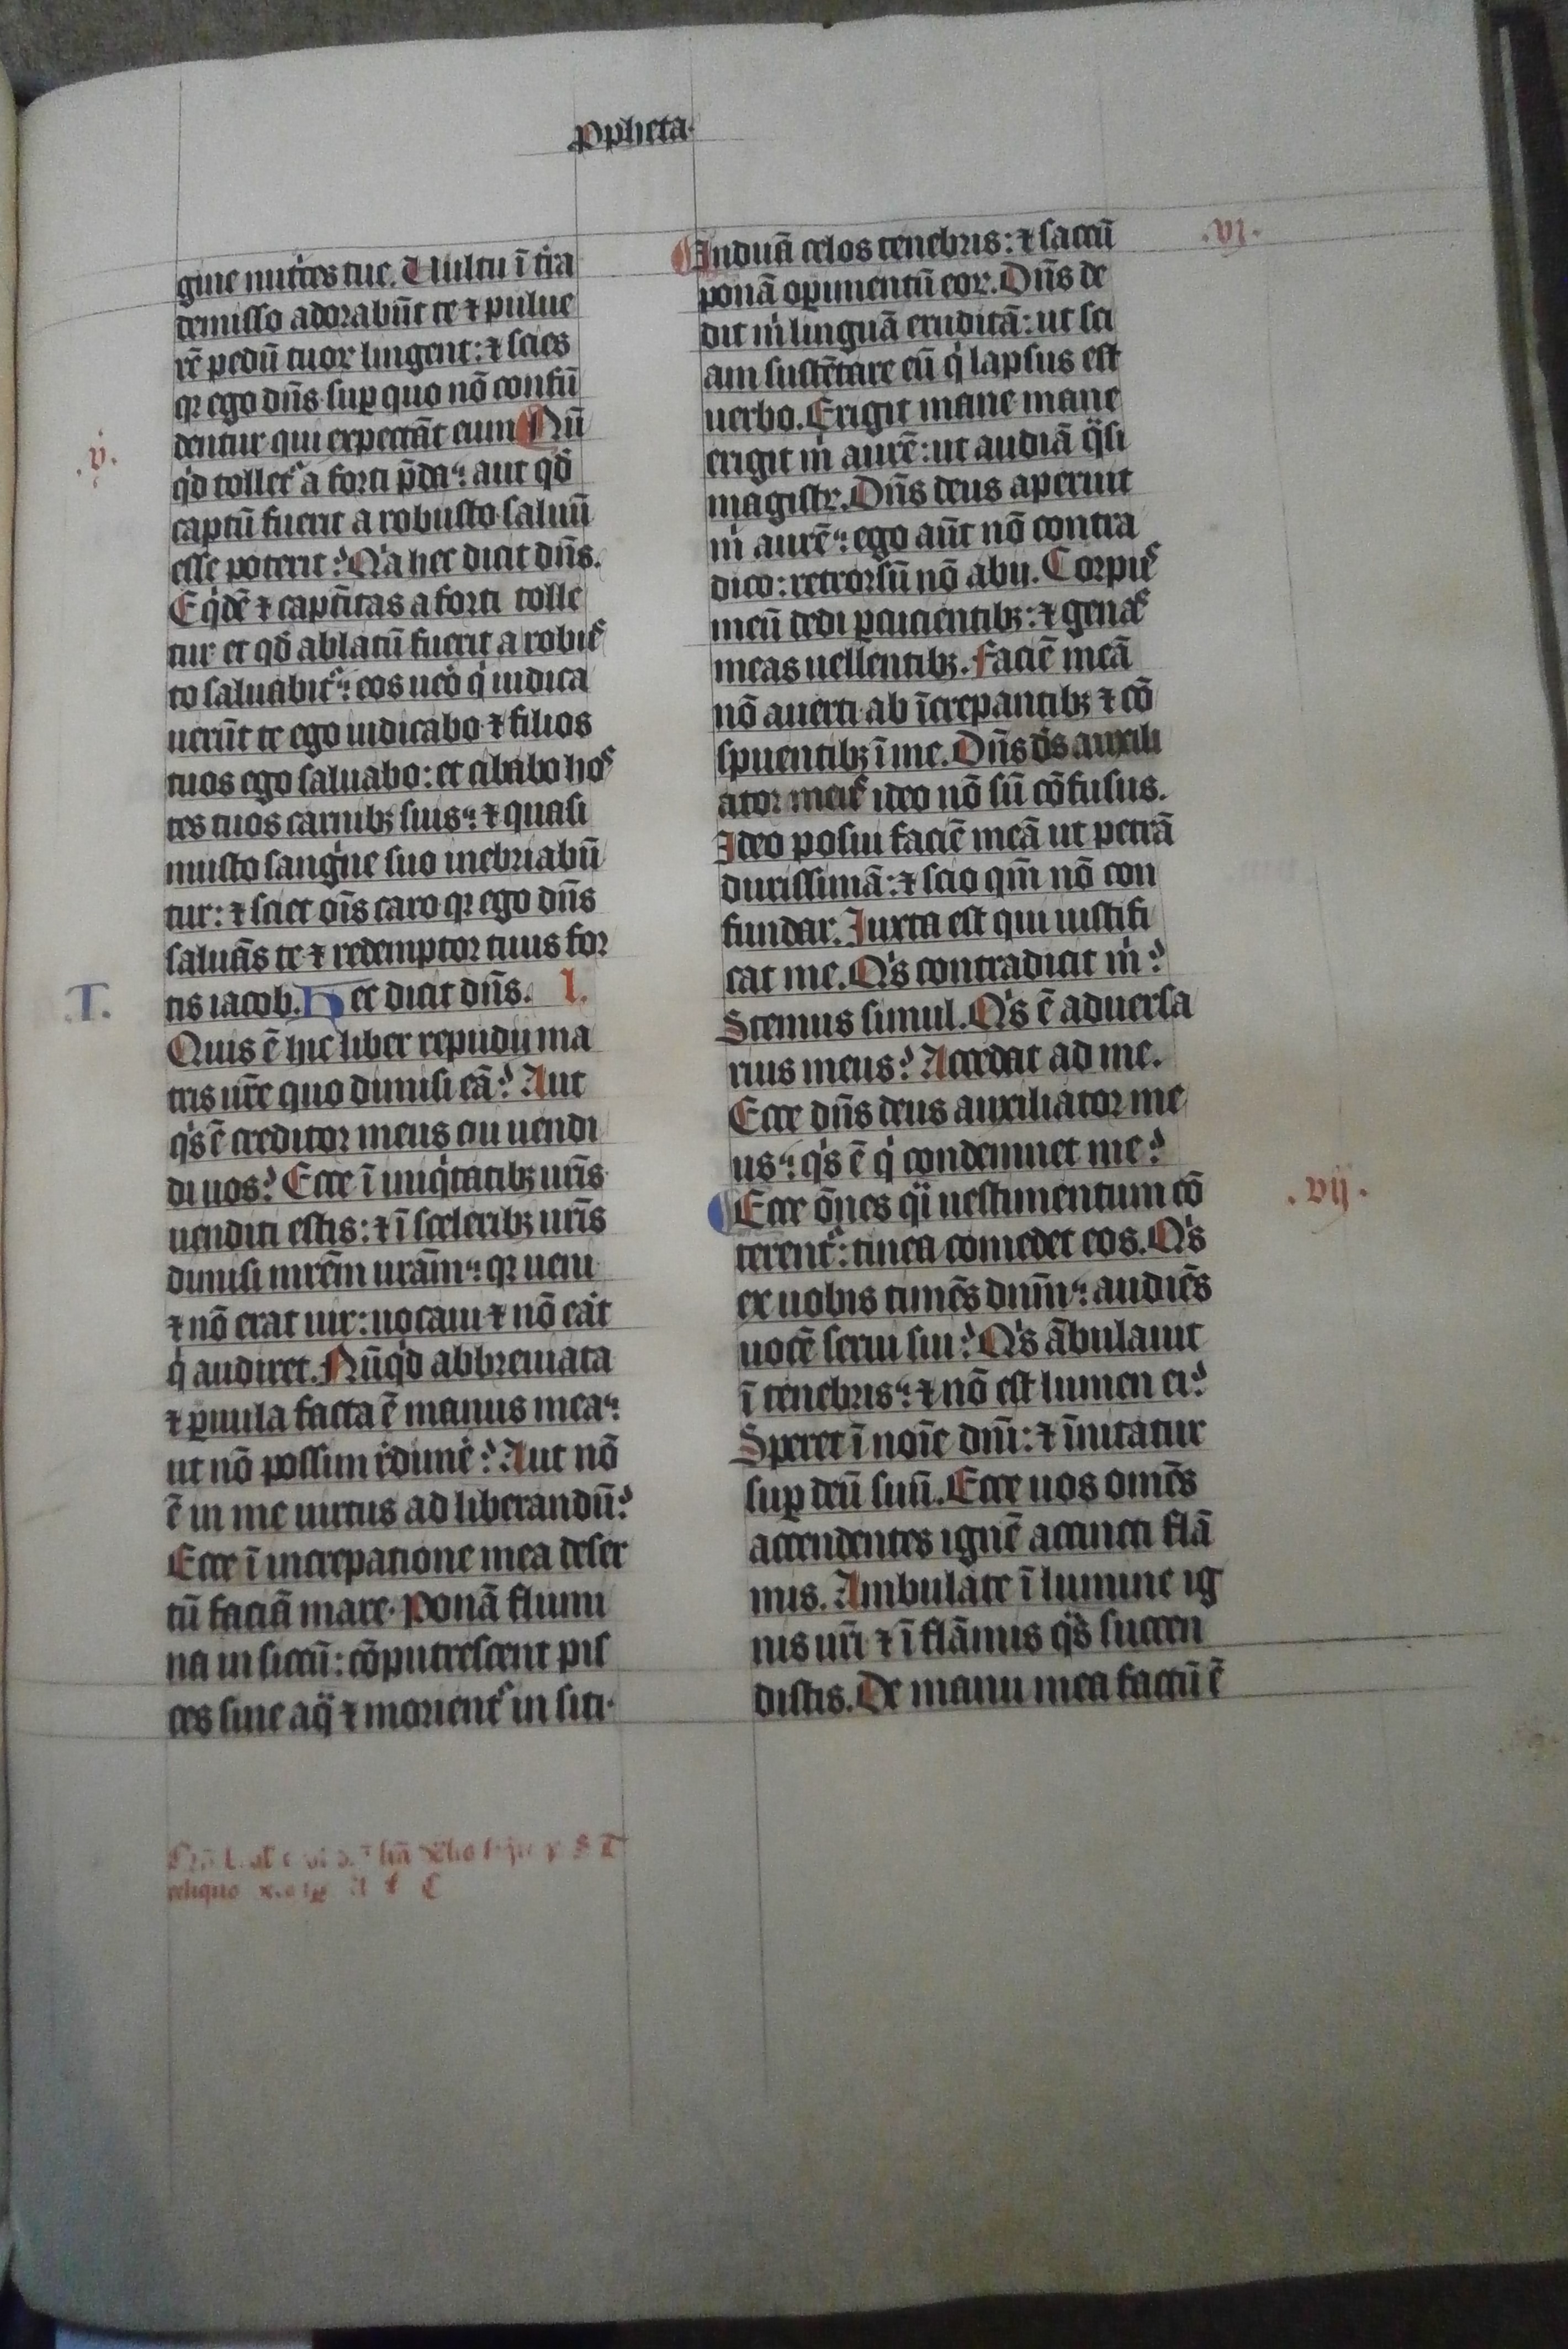 ꝓpheta·
gine nutͥces tue. Uultu ī tr̄a
demisso adorabūt te ⁊ pulue
rē pedū tuoꝝ lingent: ⁊ scies
qꝛ ego dn̄s sup̱ quo nō confū
dentur qui expectāt eum Nū
.v.
qͥd tolletᷣ a forti p̄da: aut qd̄
captū fuerit a robusto saluū
esse poterit? Qͥa hec dicit dn̄s.
Eqͥdē ⁊ captītas a forti tolle
tur et qd̄ ablatū fuerit a robuſ
to saluabitᷣ: eos ūo qͥ iudica
uerūt te ego iudicabo ⁊ filios
tuos ego saluabo: et cibabo hoſ
tes tuos carnibꝫ suis: ⁊ quasi
musto sangͥne suo inebriabū
tur: ⁊ sciet oīs caro qꝛ ego dn̄s
saluās te ⁊ redemptor tuus for
T.
tis iacob. Hec dicit dn̄s. l.
Quis ē hic liber repudii ma
tris ur̄e quo dimisi eā? Aut
qͥs ē creditor meus cui uendi
di uos? Ecce ī iniqͥtatibꝫ ur̄is
uenditi estis: ⁊ ī sceleribꝫ ur̄is
dimisi mr̄em urām: qꝛ ueni
⁊ nō erat uir: uocaui ⁊ nō eͣt
qͥ audiret. Nūqͥd abbreuiata
⁊ ꝑuula facta ē manus mea:
ut nō possim rͤdimͤe? Aut nō
ē in me uirtus ad liberandū?
Ecce ī increpatione mea deser
tū faciā mare· Ponā flumi
na in siccū: cōputrescent piſ
ces sine aqͣ ⁊ morientᷣ in siti·
Induā celos tenebris: ⁊ saccū
.vi.
ponā oꝑimentū eoꝝ. Dn̄s de
dit mͥ linguā eruditā: ut sci
am sustētare eū qͥ lapsus est
uerbo. Erigit mane mane
erigit mͥ aurē: ut audiā qͣsi
magistꝝ. Dn̄s deus aperuit
mͥ aurē: ego aūt nō contra
dico: retrorsū nō abii. Corpuſ
meū dedi ꝑcucientibꝫ: ⁊ genaſ
meas uellentibꝫ. Faciē meā
nō auerti ab īcrepantibꝫ ⁊ cō
spuentibꝫ ī me. Dn̄s ds̄ auxili
ator meuſ ideo nō sū cōfusus.
Ideo posui faciē meā ut petrā
durissimā: ⁊ scio qm̄ nō con
fundar. Iuxta est qui iustifi
cat me. Qͥs contradicit mͥ?
Stemus simul. Qͥs ē aduersa
rius meus? Accedat ad me.
Ecce dn̄s deus auxiliator me
us: qͥs ē qͥ condemnet me?
Ecce ōnes qͣi uestimentum cō
.vij.
terentᷣ: tinea comedet eos. Qͥs
ex uobis timēs dnm̄: audiēs
uocē serui sui? Qͥs ābulauit
ī tenebris: ⁊ nō est lumen ei?
Speret ī noīe dn̄i: ⁊ īnitatur
sup̱ deū suū. Ecce uos omēs
accendentes ignē accincti flā
mis. Ambulate ī lumine ig
nis ur̄i ⁊ ī flāmis qͣs succen
distis. De manu mea factū ē